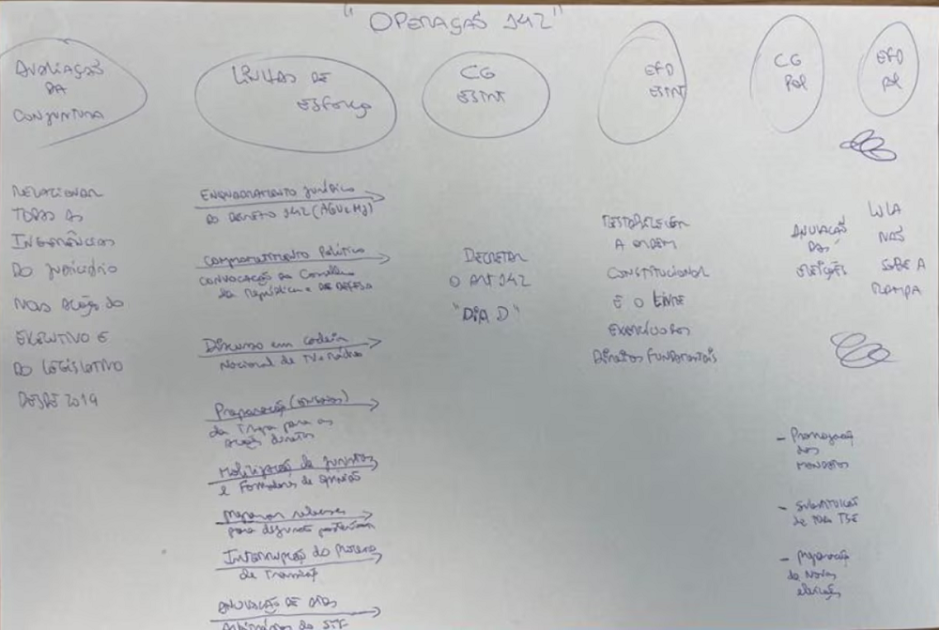 "OPERAÇÃO 142"
AVALIAÇÃO
DA
CONJUNTURA
LINHAS DE
ESFORÇO
CG
ESTRT
EFD
ESTRT
CG
POL
EFD
POL
RELACIONAR
TODAS AS
INGERÊNCIAS
DO JUDICIÁRIO
NAS AÇÕES DO
EXECUTIVO E
DO LEGISLATIVO
DESDE 2019
ENQUADRAMENTO jurídico
DO DECRETO 142 (AGU e MJ)
COMPROMETIMENTO Político
CONVOCAÇÃO DO Conselho
da República e DE DEFESA
Discurso em cadeia
Nacional de TV e Rádio
Preparação
da Tropa para as
ações diretas
Mobilização de juristas
e Formadores de opinião
para
Interrupção do Processo
de Transição
ANULAÇÃO DE ATOS
Arbitrários do STF
DECRETAR
O ART 142
"DIA D"
RESTABELECER
A ORDEM
CONSTITUCIONAL
E O LIVRE
EXERCÍCIO DOS
Direitos FUNDAMENTAIS
ANULAÇÃO
DAS
ELEIÇÕES
- Prorrogação
dos
MANDATOS
- SUBSTITUIÇÃO
de TSE
- preparação
de Novas
eleições
LULA
NÃO
SOBE A
RAMPA